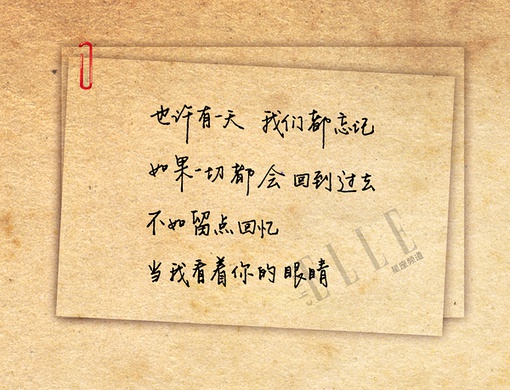 也许有一天 我们都忘记
如果一切都会回到过去
不如留点回忆
当我看着你的眼睛
ELLE
星座频道